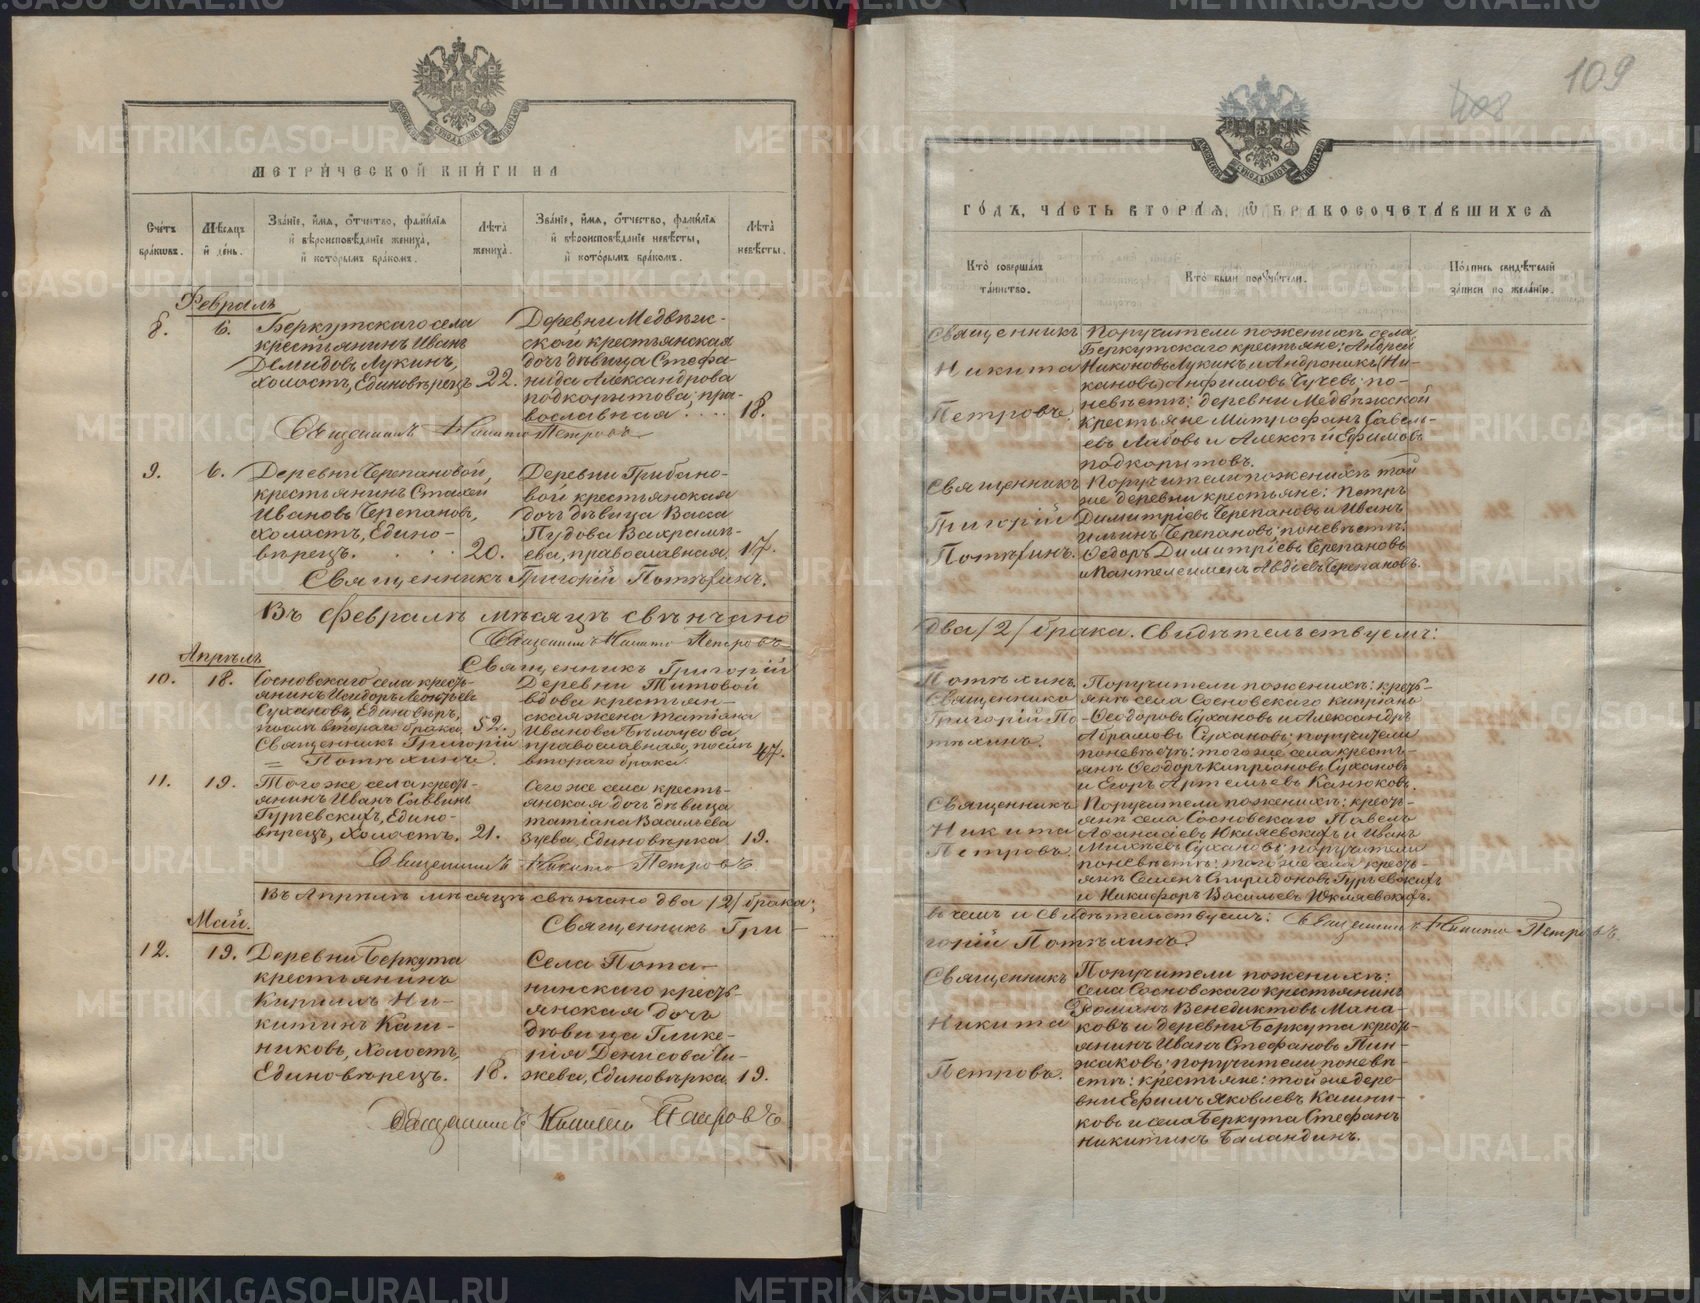 109
МЕТРИ́ЧЕСКОЙ КНИ́ГИ НА
Сче́тъ бра́ковъ.
Мѣ́сяцъ и҆ де́нь.
Зва́нїе, и҆́мя, ѻ҆́тчество, фами́лїя и҆ вѣроисповѣ́данїе жениха̀, и҆ кото́рымъ бра́комъ.
Лѣ́та жениха̀.
Зва́нїе, и҆́мя, ѻ҆́тчество, фами́лїя и҆ вѣроисповѣ́данїе невѣ́сты, и҆ кото́рымъ бра́комъ.
Лѣ́та невѣ́сты.
Февраль
8.
6.
Беркутскаго села
крестьянинъ Иванъ
Демидовъ Лукинъ,
холостъ, Единовѣрецъ
22.
Деревни Медвѣж-
ской крестьянская
дочь дѣвица Стефа-
нида Александрова
Подкорытова, пра-
вославная
18.
Священникъ Никита Петровъ
9.
6.
Деревни Черепановой,
крестьянинъ Стахей
Ивановъ Черепановъ,
холостъ, Едино-
вѣрецъ.
20.
Деревни Грибано-
вой крестьянская
дочь дѣвица Васса
Пудова Вахрамѣ-
ева, православная
17.
Священникъ Григорій Потѣхинъ.
Въ февралѣ мѣсяцѣ свѣнчано
Священникъ Никита Петровъ
Священникъ Григорій
Апрѣль
10.
18.
Сосновскаго села кресть-
янинъ Исидоръ Леонтьевъ
Сухановъ, Единовѣр.,
послѣ втораго брака
52.
Священникъ Григорій
Потѣхинъ.
Деревни Титовой
вдова крестьян-
ская жена Татіана
Иванова Бѣлоусова
православная, послѣ
втораго брака
47.
11.
19.
Того же села кресть-
янинъ Иванъ Саввинъ
Гурьевскихъ, Едино-
вѣрецъ, холостъ.
21.
Сего же села кресть-
янская дочь дѣвица
Татіана Васильева
Зуева, Единовѣрка
19.
Священникъ Никита Петровъ
Въ Апрѣлѣ мѣсяцѣ свѣнчано два /2/ брака;
Священникъ Гри-
Май.
12.
19.
Деревни Беркута
крестьянинъ
Кириллъ Ни-
китинъ Каш-
никовъ, холостъ,
Единовѣрецъ.
18.
Села Пота-
нинскаго кресть-
янская дочь
дѣвица Глике-
рія Денисова Чи-
жева, Единовѣрка
19.
Священникъ Никита Петровъ
ГО́ДЪ, ЧА́СТЬ ВТОРА́Я, Ѡ҆ БРАКОСОЧЕТА́ВШИХСЯ
Кто̀ соверша́лъ та́инство.
Кто̀ бы́ли порꙋчи́тели.
По́дпись свидѣ́телей за́писи по жела́нїю.
Священникъ
Никита
Петровъ
Поручители по женихѣ села
Беркутскаго крестьяне: Андрей
Никоновъ Лукинъ и Андроникъ (Ни-
кановъ) Анфимовъ Чучевъ; по
невѣстѣ: деревни Медвѣжской
крестьяне Митрофанъ Савель-
евъ Лабовъ и Алексѣй Ефимовъ
Подкорытовъ.
Священникъ
Григорій
Потѣхинъ.
Поручители по женихѣ той
же деревни крестьяне: Петръ
Димитріевъ Черепановъ и Иванъ
Ильинъ Черепановъ; по невѣстѣ:
Ѳедоръ Димитріевъ Черепановъ
и Пантелеимонъ Авдѣевъ Черепановъ.
два /2/ брака. Свидѣтельствуемъ:
Потѣхинъ.
Священникъ
Григорій По-
тѣхинъ.
Поручители по женихѣ: кресть-
янѣ села Сосновскаго Кипріанъ
Ѳеодоровъ Сухановъ и Александръ
Абрамовъ Сухановъ; поручители
по невѣстѣ: того же села кресть-
янѣ Ѳеодоръ Кипріановъ Сухановъ
и Егоръ Артемьевъ Канюковъ.
Священникъ
Никита
Петровъ
Поручители по женихѣ: кресть-
янѣ села Сосновскаго Павелъ
Аѳанасіевъ Юкляевскихъ и Иванъ
Михѣевъ Сухановъ; поручители
по невѣстѣ: того же села кресть-
янѣ Семенъ Спиридоновъ Гурьевскихъ
и Никифоръ Васильевъ Юкляевскихъ.
въ чемъ и свидѣтельствуемъ: Священникъ Никита Петровъ
горій Потѣхинъ.
Священникъ
Никита
Петровъ.
Поручители по женихѣ:
села Сосновскаго крестьянинъ
Романъ Венедиктовъ Мана-
ковъ и деревни Беркута кресть-
янинъ Иванъ Стефановъ Пин-
жаковъ; поручители по невѣ-
стѣ: крестьяне: той же дере-
вни Ефимъ Яковлевъ Кашни-
ковъ и села Беркута Стефанъ
Никитинъ Баландинъ.
METRIKI.GASO-URAL.RU